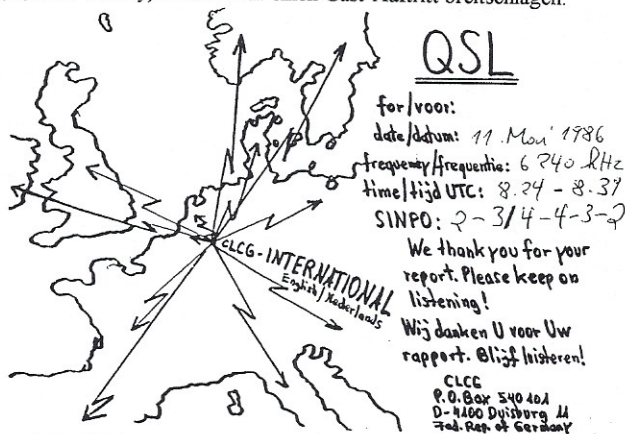 einen Gast-Auftritt breitschlagen.
QSL
for/voor:
date/datum: 11. Mai 1986
frequency/frequentie: 6240 kHz
time/tijd UTC: 8.24 - 8.37
SINPO: 2-3/4-4-3-2
We thank you for your
report. Please keep on
listening!
Wij danken U voor Uw
rapport. Blijf luisteren!
CLCG
P.O. Box 540101
D-4100 Duisburg 11
Fed. Rep. of Germany
CLCG-INTERNATIONAL
English/Nederlands